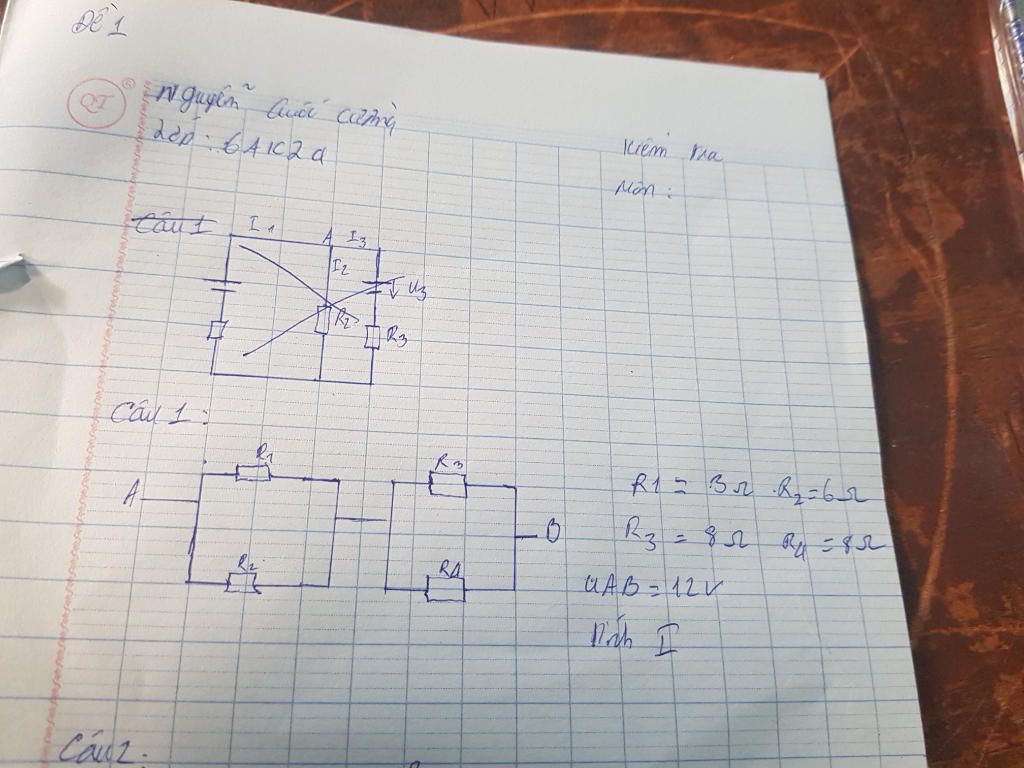 Đề 1
QT ®
Nguyễn
Lớp: 6A1K2a
Kiểm tra
Môn:
Câu 1
I1 A I3
I2
U3
R2 R3
Câu 1:
R1 R3
A B
R2 R4
R1 = 3Ω . R2 = 6Ω
R3 = 8Ω R4 = 8Ω
UAB = 12V
Tính I
Câu 2: